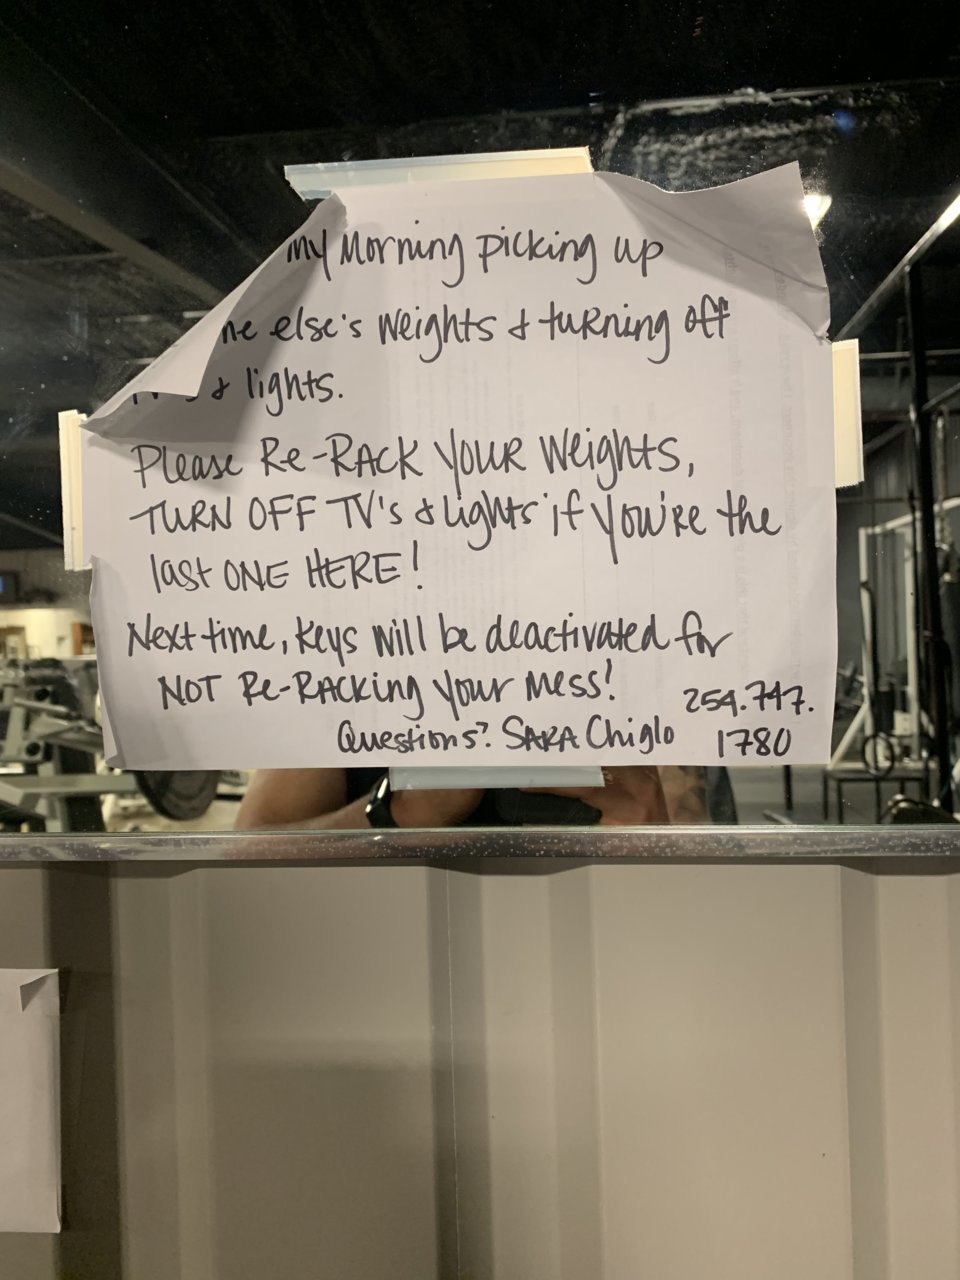 my Morning picking up
ne else's Weights & turning off
& lights.
Please Re-RACK YOUR Weights,
TURN OFF TV's & Lights if you're the
last ONE HERE!
Next time, keys will be deactivated for
NOT Re-RACking your Mess!
254.747.
Questions? SARA Chiglo 1780